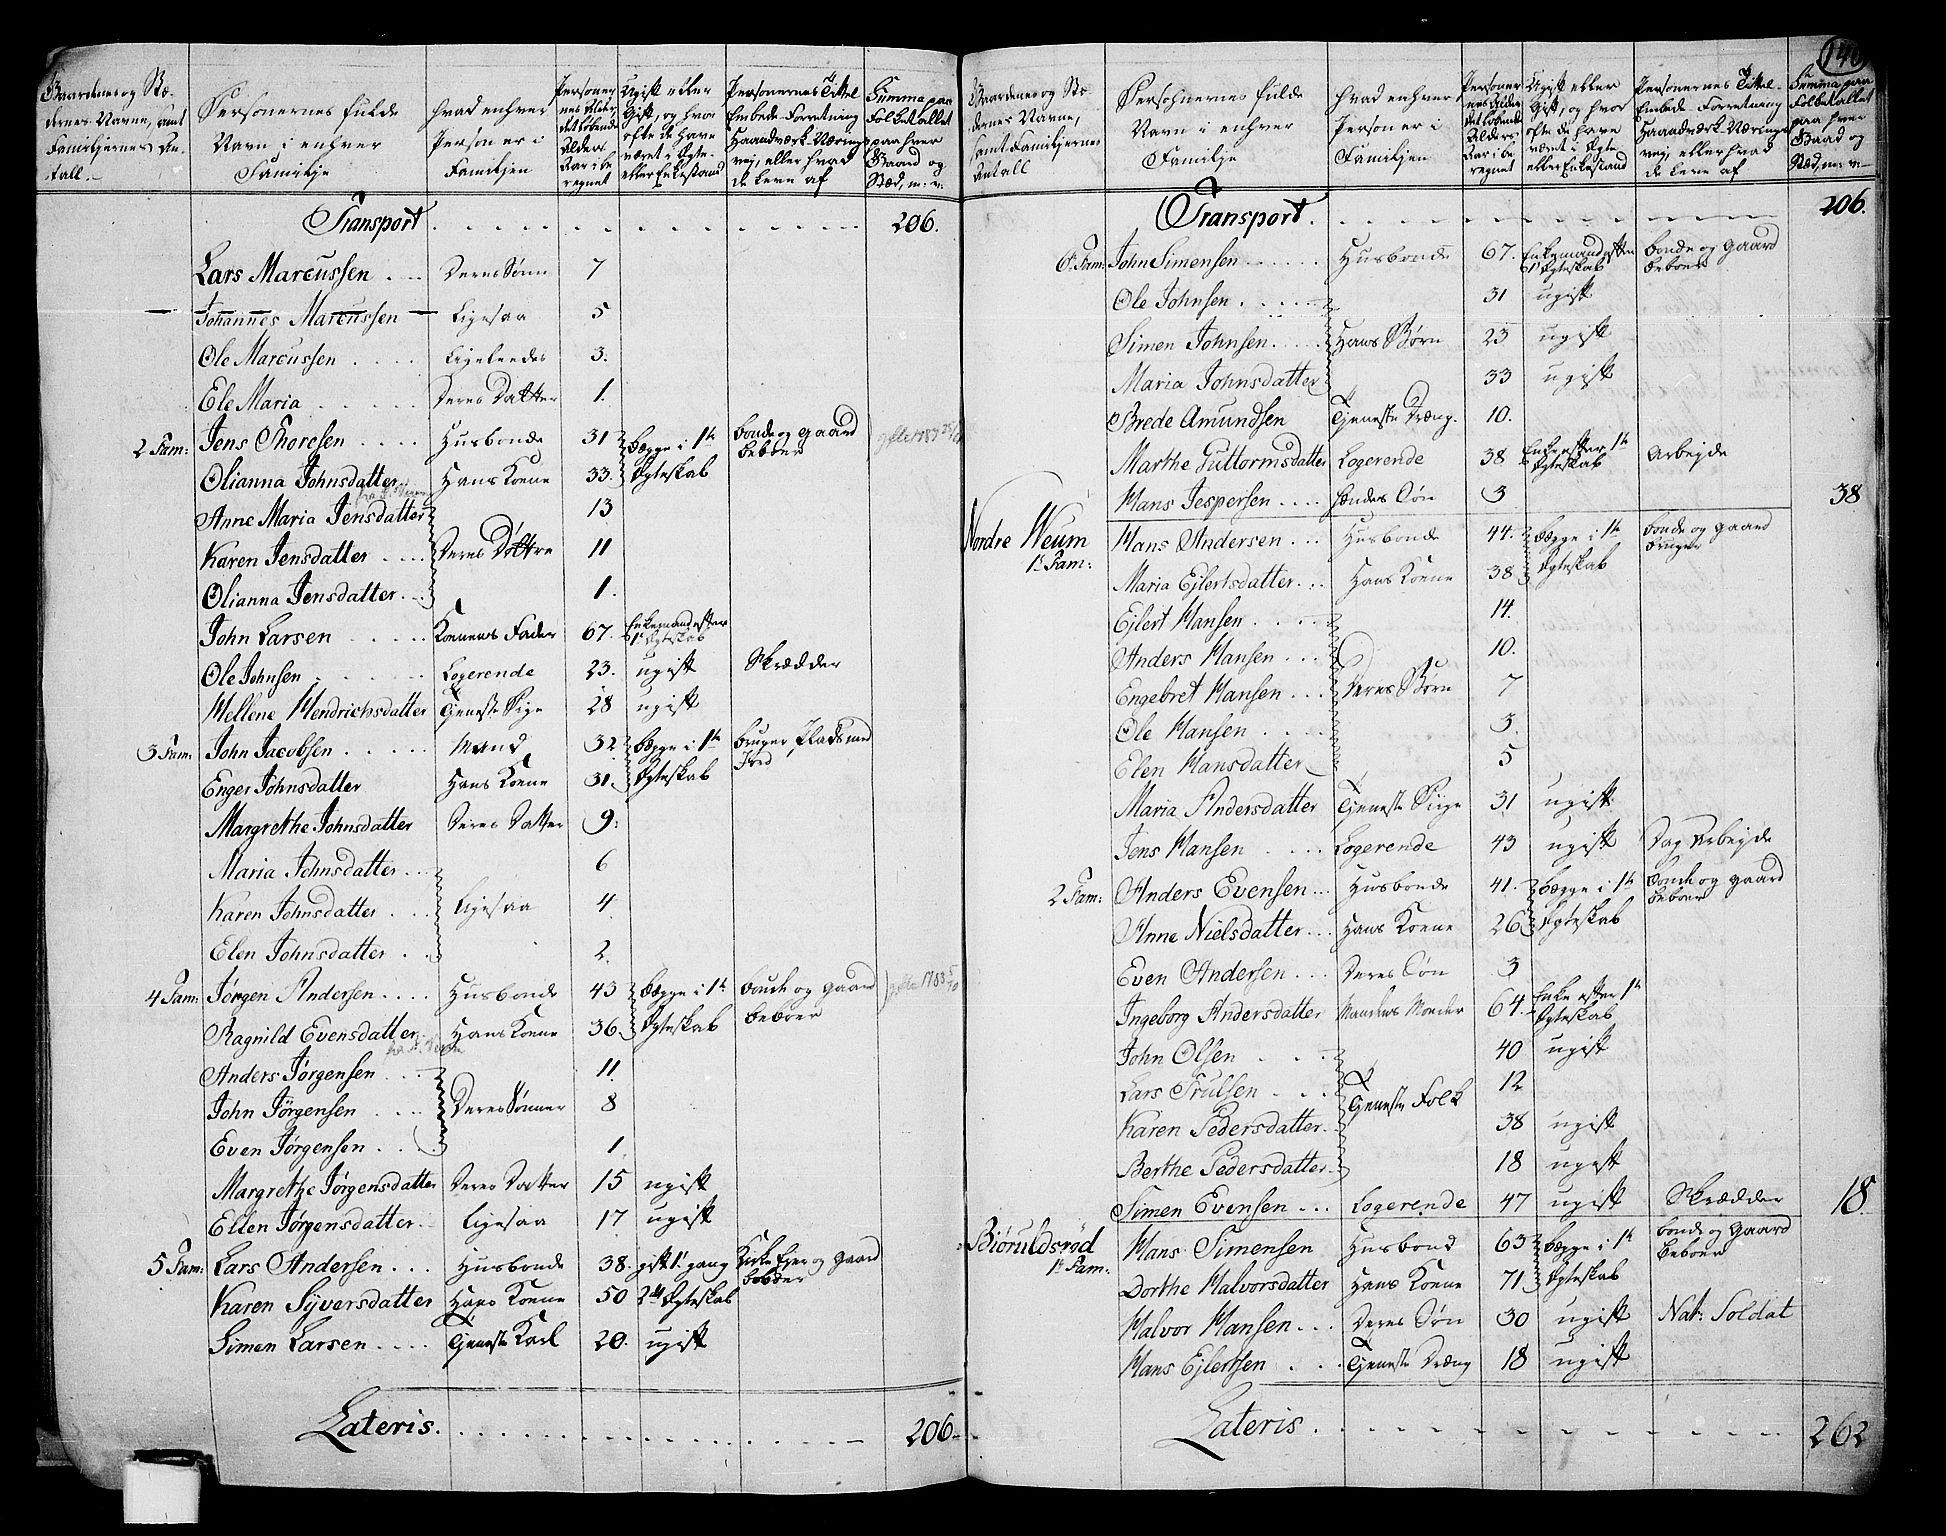 Gaardenes og Stæ-
dernes Navne, samt
Familjernes An-
tall.
Personernes fulde
Navn i enhver
Familje
hvad enhver
Person er i
Familjen
Personer-
nes Alder,
det løbende
Alders
Aar i be-
regnet
Ugift eller
Gift, og hvor
ofte de have
været i Ægte-
eller Enkestand
Personernes Tittel
Embede Forretning
Haandværk Nærings
vej, eller hvad
de leve af
Summa paa
Folketallet
paa hver
Gaard og
Stæd, m. v.
Transport 206.
Lars Marcussen Deres Sønn 7
Johannes Marcussen Ligesaa 5
Ole Marcussen Ligeleedes 3.
Ele Maria Deres Datter 1.
2 Fam: Jens Thoresen Husbonde 31 begge i 1te Ægteskab bonde og gaard beboer
Olianna Johnsdatter Hans Kone 33.
Anne Maria Jensdatter 13
Karen Jensdatter Deres Døttre 11
Olianna Jensdatter 1.
John Larsen Konens Fader 67. Enkemand efter 1te Ægteskab
Ole Johnsen Logerende 23. ugift Skrædder
Mellene Hendrichsdatter Tjeneste Pige 28 ugift
3 Fam: John Jacobsen Mand 32 begge i 1te Ægteskab bruger Plads med Jord
Enger Johnsdatter Hans Kone 31.
Margrethe Johnsdatter Deres Datter 9.
Maria Johnsdatter 6
Karen Johnsdatter Ligesaa 4.
Elen Johnsdatter 2.
4 Fam: Jørgen Andersen Husbonde 43 begge i 1te Ægteskab bonde og gaard beboer
Ragnild Evensdatter Hans Kone 36.
Anders Jørgensen 11.
John Jørgensen Deres Sønner 8
Even Jørgensen 1.
Margrethe Jørgensdatter Deres Datter 15 ugift
Ellen Jørgensdatter Ligesaa 17 ugift
5 Fam: Lars Andersen Husbonde 38. gift 1. gang Kirke Ejer og gaard beboer
Karen Syversdatter Hans Kone 50 2det Ægteskab
Simen Larsen Tjeneste Karl 20. ugift
Lateris. 206.
140
Gaardenes og Stæ-
dernes Navne,
samt Familjernes
Antall
Personernes fulde
Navn i enhver
Familje
hvad enhver
Person er i
Familjen
Personer-
nes Alder
det løbende
Alders
Aar i be-
regnet
Ugift eller
Gift, og hvor
ofte de have
været i Ægte
eller Enkestand
Personernes Tittel
Embede Forretning
Haandværk Nærings
vej, eller hvad
de leve af
Summa paa
Folketallet
paa hver
Gaard og
Stæd, m. v.
Transport. 206.
6. Fam: John Simensen Husbonde 67. Enkemand efter 1te Ægteskab bonde og gaard beboer
Ole Johnsen 31 ugift
Simen Johnsen Hans Børn 23 ugift
Maria Johnsdatter 33 ugift
Brede Amundsen Tjeneste Dræng. 10.
Marthe Guttormsdatter Logerende 38 Enke efter 1te Ægteskab Arbejde
Hans Jespersen hendes Søn 3 38
Nordre Weum Hans Andersen Husbonde 44. begge i 1te Ægteskab bonde og gaard bruger
1. Fam: Maria Ejlertsdatter Hans Kone 38
Ejlert Hansen 14.
Anders Hansen 10.
Engebret Hansen Deres Børn 7
Ole Hansen 3.
Elen Hansdatter 5
Maria Andersdatter Tjeneste Piige 31 ugift
Jens Hansen Logerende 43 ugift Dag Arbejde
2 Fam: Anders Evensen Husbonde 41. begge i 1te Ægteskab bonde og gaard beboer
Anne Nielsdatter Hans Kone 26
Even Andersen Deres Søn 3
Ingeborg Andersdatter Mandens Moeder 64. Enke efter 1te Ægteskab
John Olsen 40 ugift
Lars Trulsen Tjeneste Folk 12
Karen Pedersdatter 38 ugift
Berthe Pedersdatter 18 ugift
Simen Evensen Logerende 47 ugift Skrædder 18.
Biøruldsrød Hans Simensen Husbond 63 begge i 1te Ægteskab bonde og Gaard beboer
1. Fam: Dorthe Halvorsdatter Hans Kone 71
Halvor Hansen Deres Søn 30 ugift Nat: Soldat
Hans Ejlertsen Tjeneste Dræng 18 ugift
Lateris 262